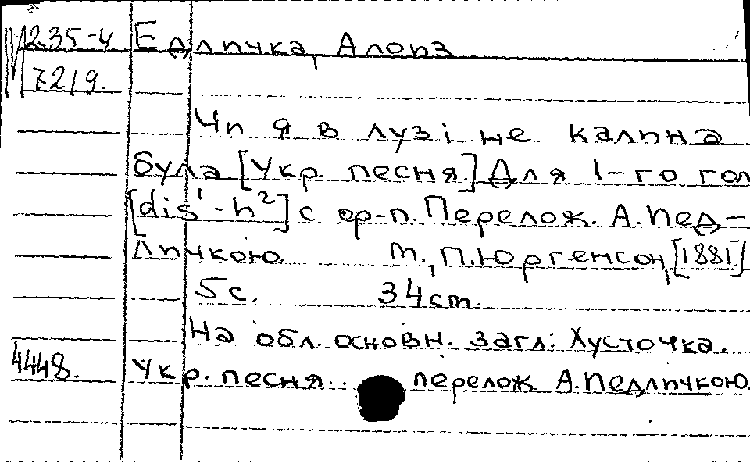 М 235-4 Едличка, Алоиз
7219.
Чи я в лузі не калина
була [Укр. песня] Для 1-го гол
[dis¹-h²] с ф-п. Перелож. А. Иед-
личкою М., П. Юргенсон, [1881]
5 с. 34 cm.
На обл. основн. загл: Хусточка.
4448. Укр. песня перелож А. Иедличкою.